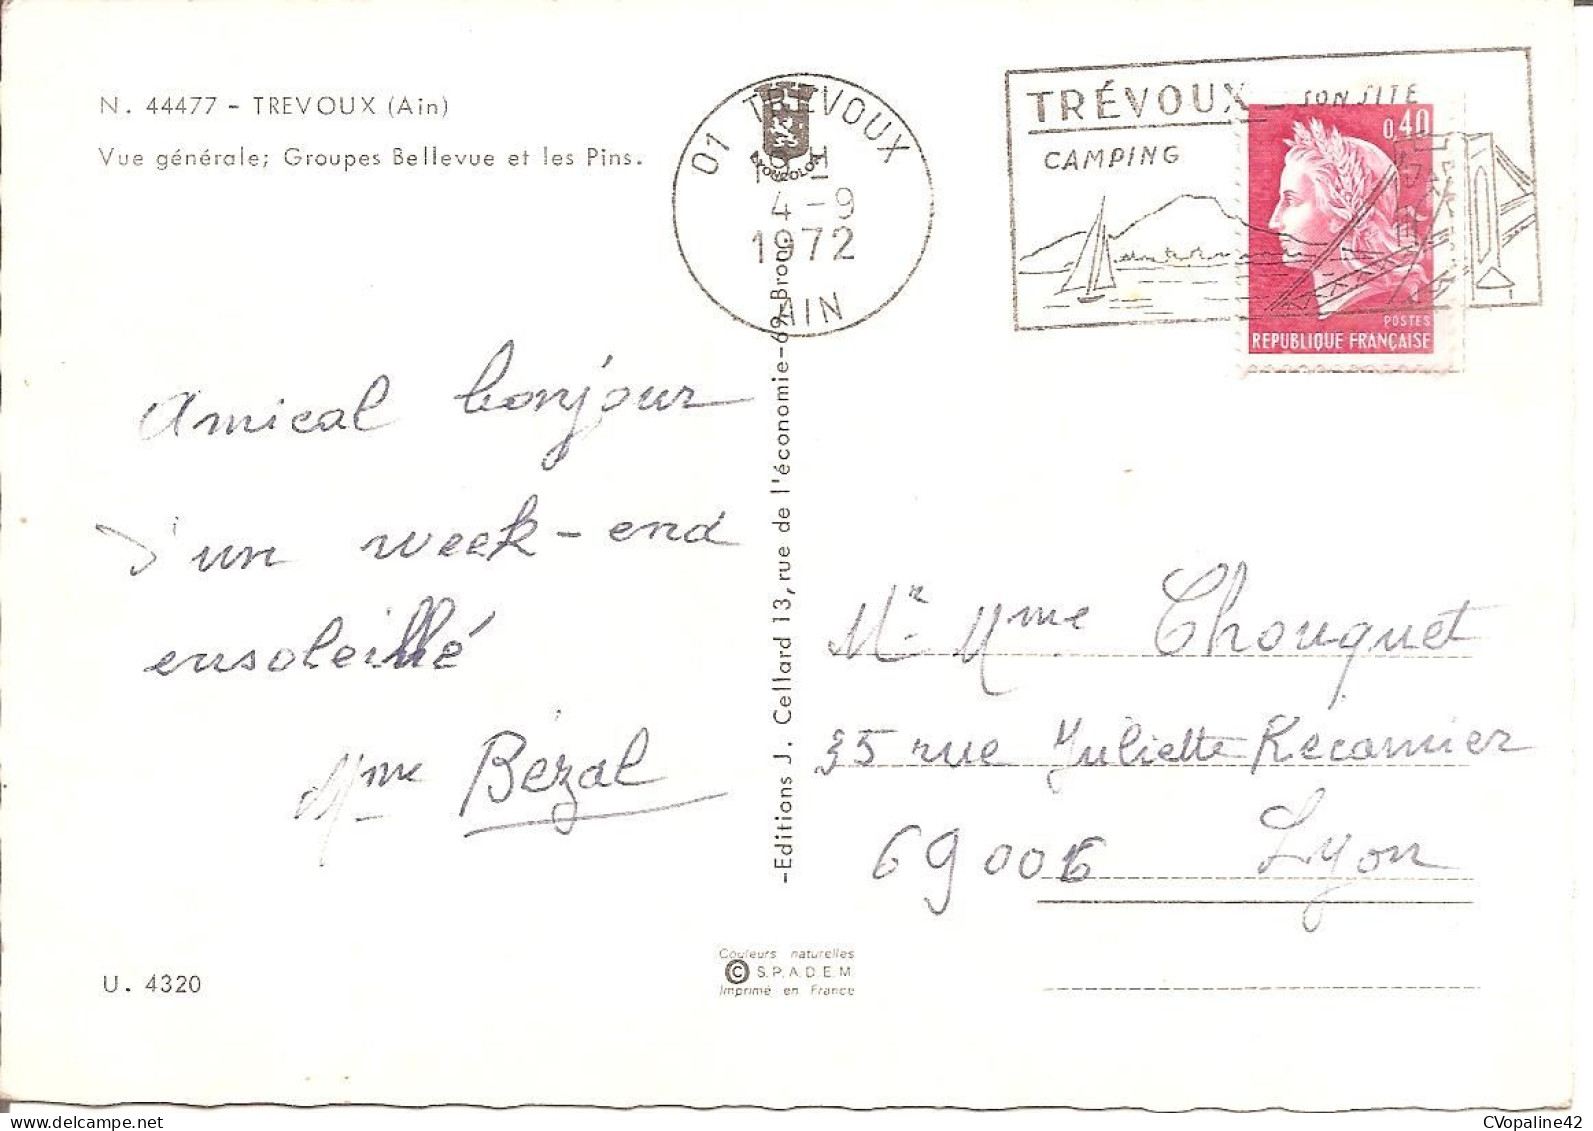 N. 44477 - TREVOUX (Ain)
Vue générale; Groupes Bellevue et les Pins.
01 TREVOUX
4-9
1972
AIN
TRÉVOUX - SON SITE
CAMPING
0,40
POSTES
REPUBLIQUE FRANÇAISE
Amical bonjour
d'un week-end
ensoleillé
Mme Bézal
-Editions J. Cellard 13, rue de l'économie-69-Bron.
Mr. Mme Chouquet
35 rue Juliette Recamier
69006 Lyon
U. 4320
Couleurs naturelles
© S.P.A.D.E.M
Imprimé en France
CVopaline42